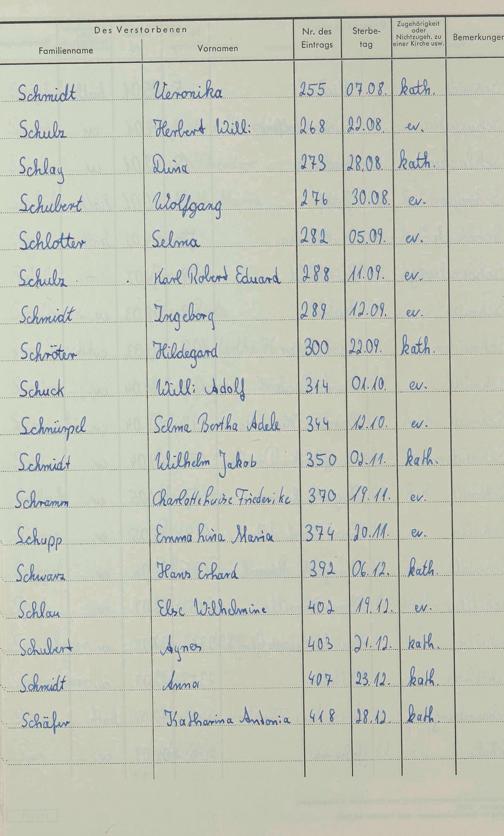 Des Verstorbenen
Familienname Vornamen Nr. des Eintrags Sterbe-tag Zugehörigkeit oder Nichtzugeh. zu einer Kirche usw. Bemerkungen
Schmidt Veronika 255 07.08. kath.
Schulz Herbert Willi 268 22.08. ev.
Schlay Dina 273 28.08. kath.
Schubert Wolfgang 276 30.08. ev.
Schlotter Selma 282 05.09. ev.
Schulz Karl Robert Eduard 288 11.09. ev.
Schmidt Ingeborg 289 12.09. ev.
Schröter Hildegard 300 22.09. kath.
Schuck Willi Adolf 314 01.10. ev.
Schnürpel Selma Bertha Adele 344 12.10. ev.
Schmidt Wilhelm Jakob 350 02.11. kath.
Schramm Charlotte Luise Friederike 370 19.11. ev.
Schupp Emma Lina Maria 374 20.11. ev.
Schwarz Hans Erhard 392 06.12. kath.
Schlau Else Wilhelmine 402 19.12. ev.
Schubert Agnes 403 21.12. kath.
Schmidt Anna 407 23.12. kath.
Schäfer Katharina Antonia 418 28.12. kath.